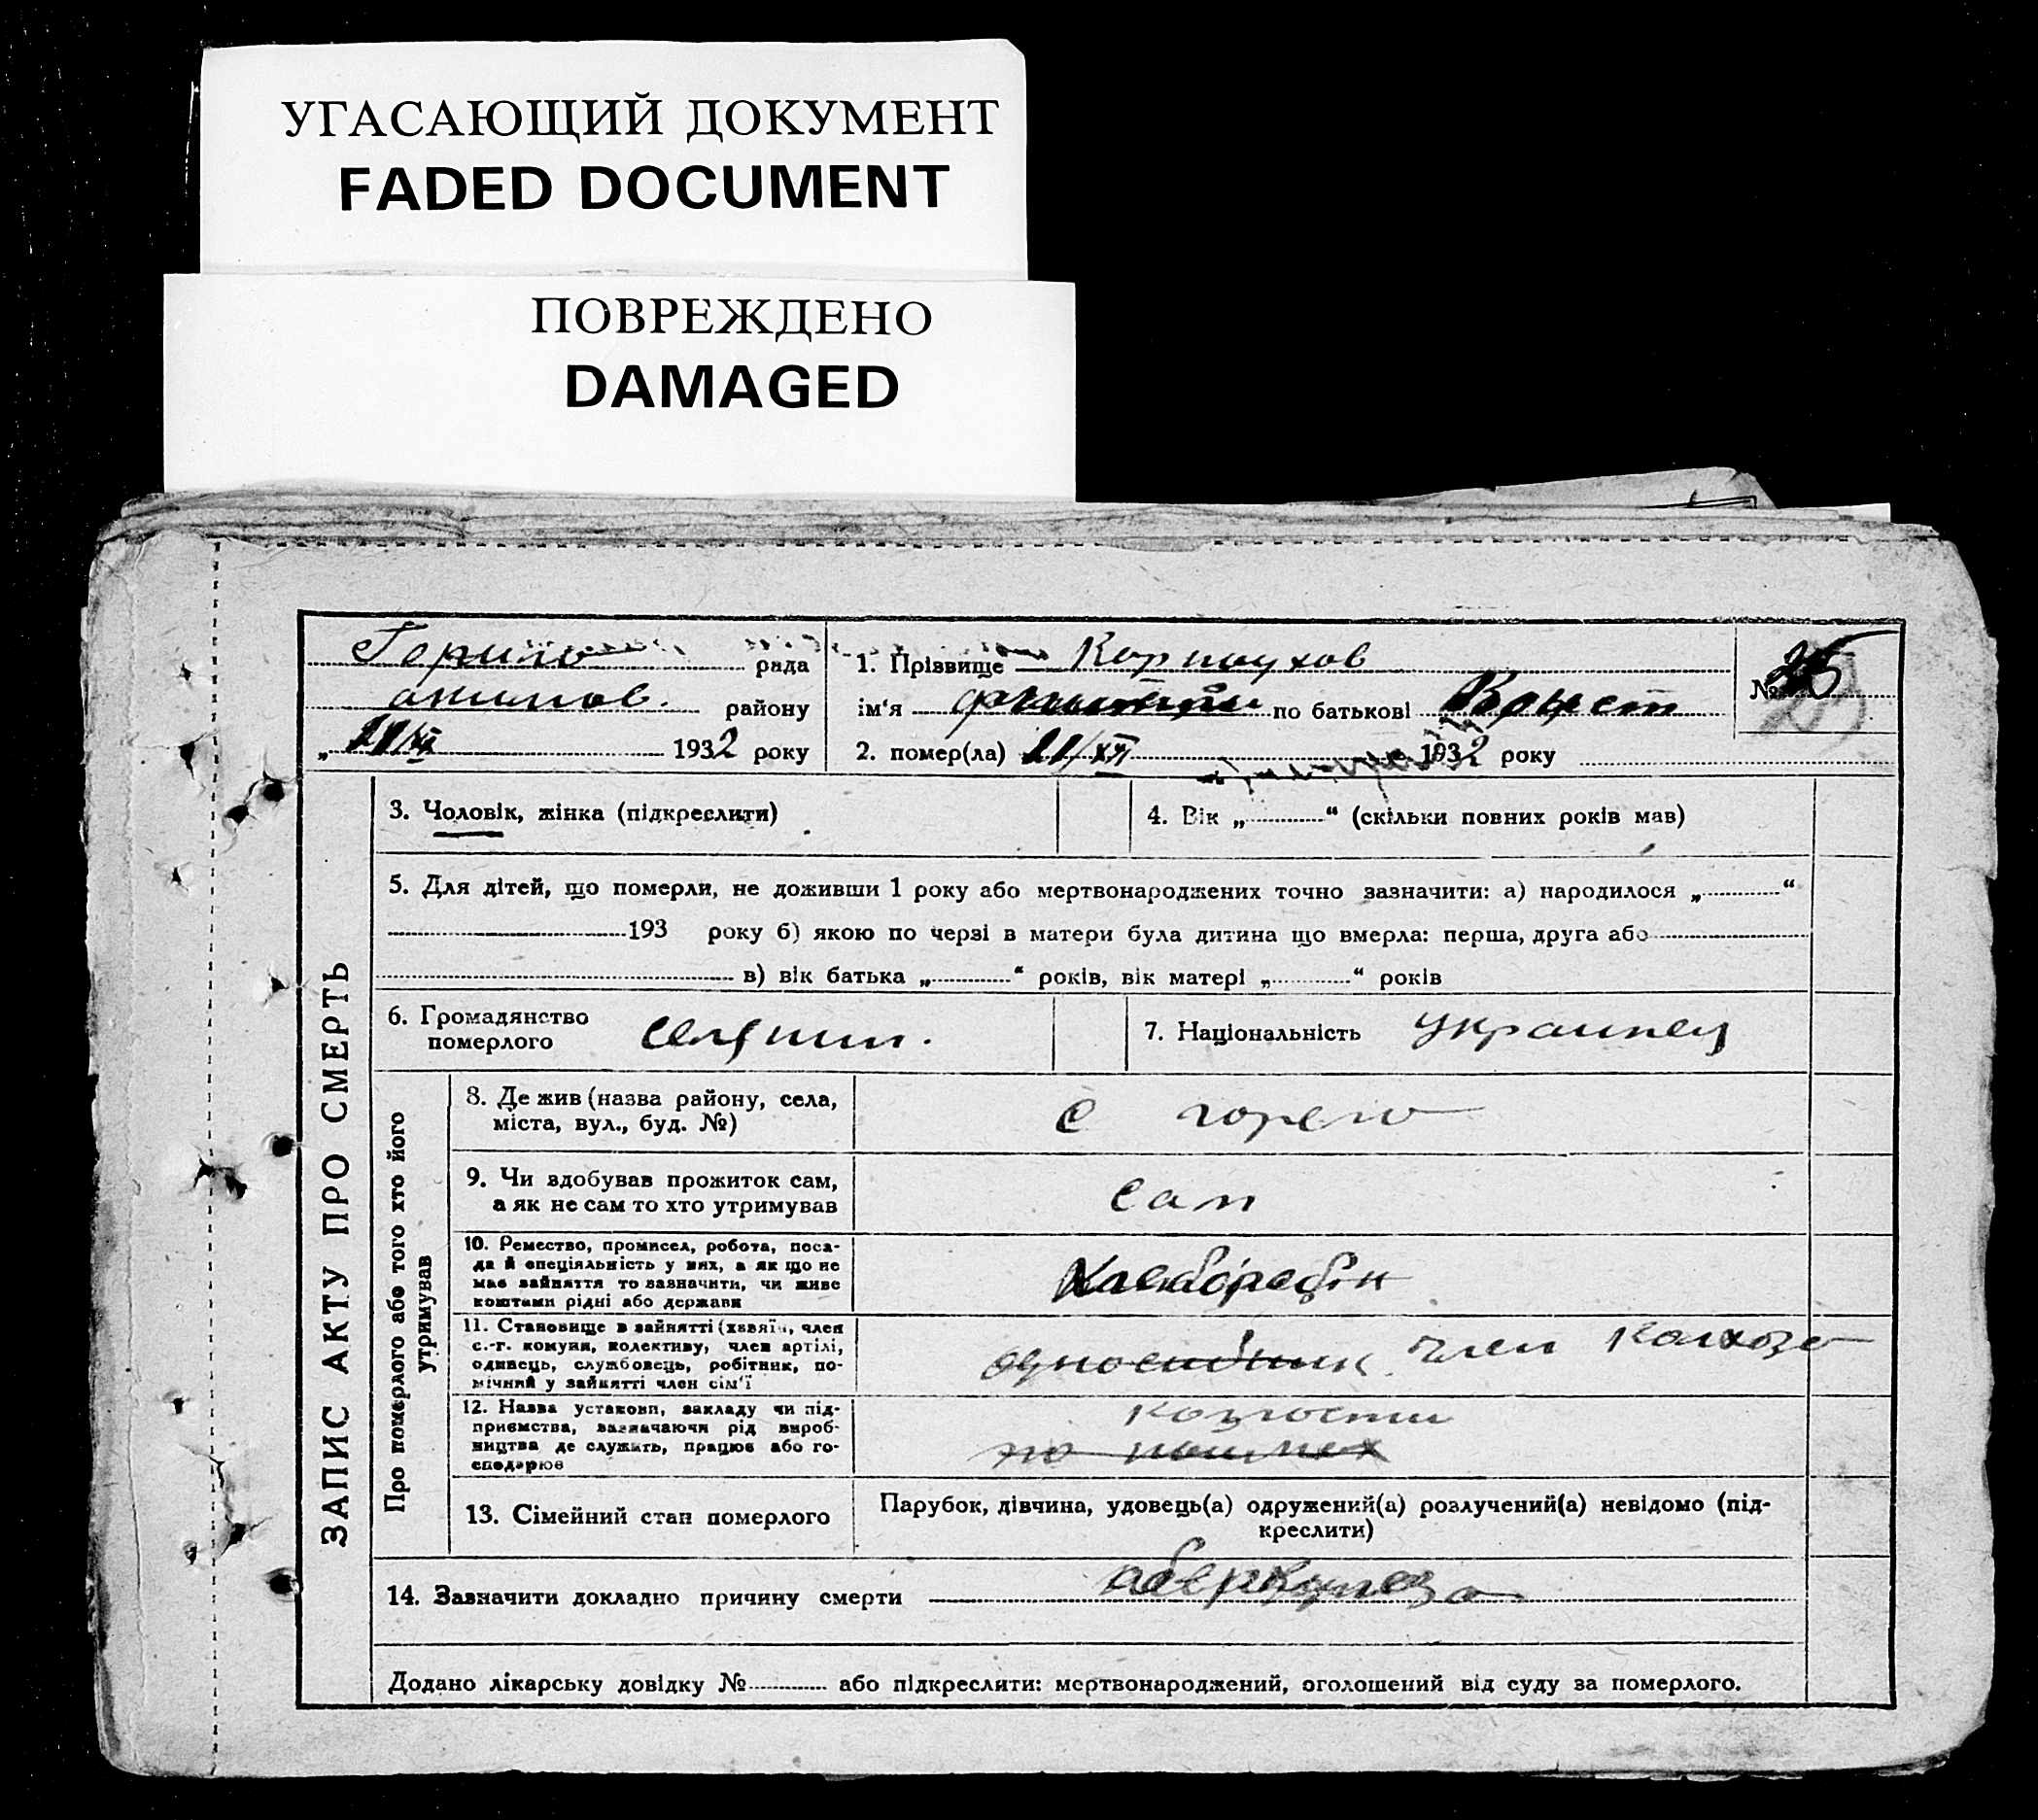 УГАСАЮЩИЙ ДОКУМЕНТ
FADED DOCUMENT
ПОВРЕЖДЕНО
DAMAGED
рада
району
1932 року
1. Прізвище Корпаухов
ім'я по батькові
2. помер(ла) 21/XII 1932 року
№ 25
ЗАПИС АКТУ ПРО СМЕРТЬ
3. Чоловік, жінка (підкреслити)
4. Вік „ “ (скільки повних років мав)
5. Для дітей, що померли, не доживши 1 року або мертвонароджених точно зазначити: а) народилося „ “
193 року б) якою по черзі в матери була дитина що вмерла: перша, друга або
в) вік батька „ “ років, вік матері „ “ років
6. Громадянство
померлого
7. Національність Украинец
Про померлого або того хто його
утримував
8. Де жив (назва району, села,
міста, вул., буд. №)
с
9. Чи здобував прожиток сам,
а як не сам то хто утримував
сам
10. Ремество, промисел, робота, поса-
да й спеціяльність у них, а як що не
має зайняття то зазначити, чи живе
коштами рідні або держави
Хлебороб
11. Становище в зайнятті (хазяїн, член
с.-г. комуни, колективу, член артілі,
одинець, службовець, робітник, по-
мічний у зайнятті член сім'ї
член колхоза
12. Назва установи, закладу чи під-
приємства, зазначаючи рід вироб-
ництва де служить, працює або го-
сподарює
13. Сімейний стан померлого
Парубок, дівчина, удовець(а) одружений(а) розлучений(а) невідомо (під-
креслити)
14. Зазначити докладно причину смерти
Додано лікарську довідку № або підкреслити: мертвонароджений, оголошений від суду за померлого.